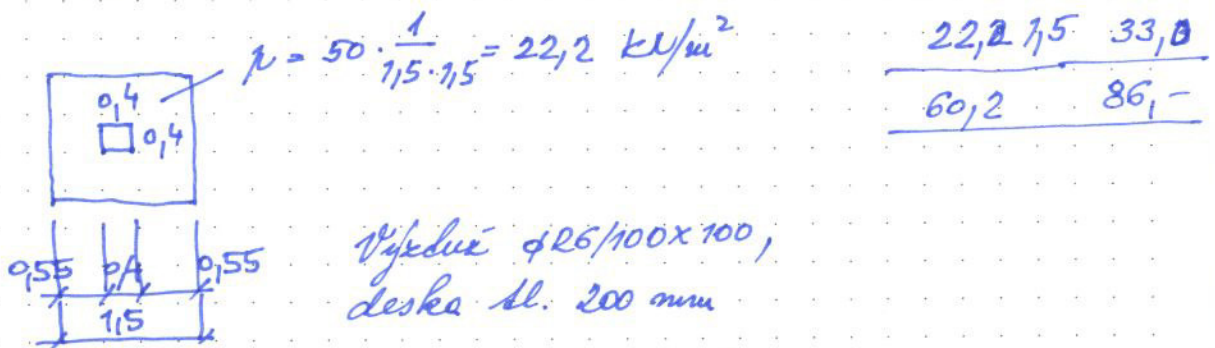 p = 50 · 1/1,5·1,5 = 22,2 kN/m²
22,2 1,5 33,3
60,2 86,-
0,4
0,4
0,55 0,4 0,55
1,5
Výztuž ϕR6/100x100,
deska tl. 200 mm